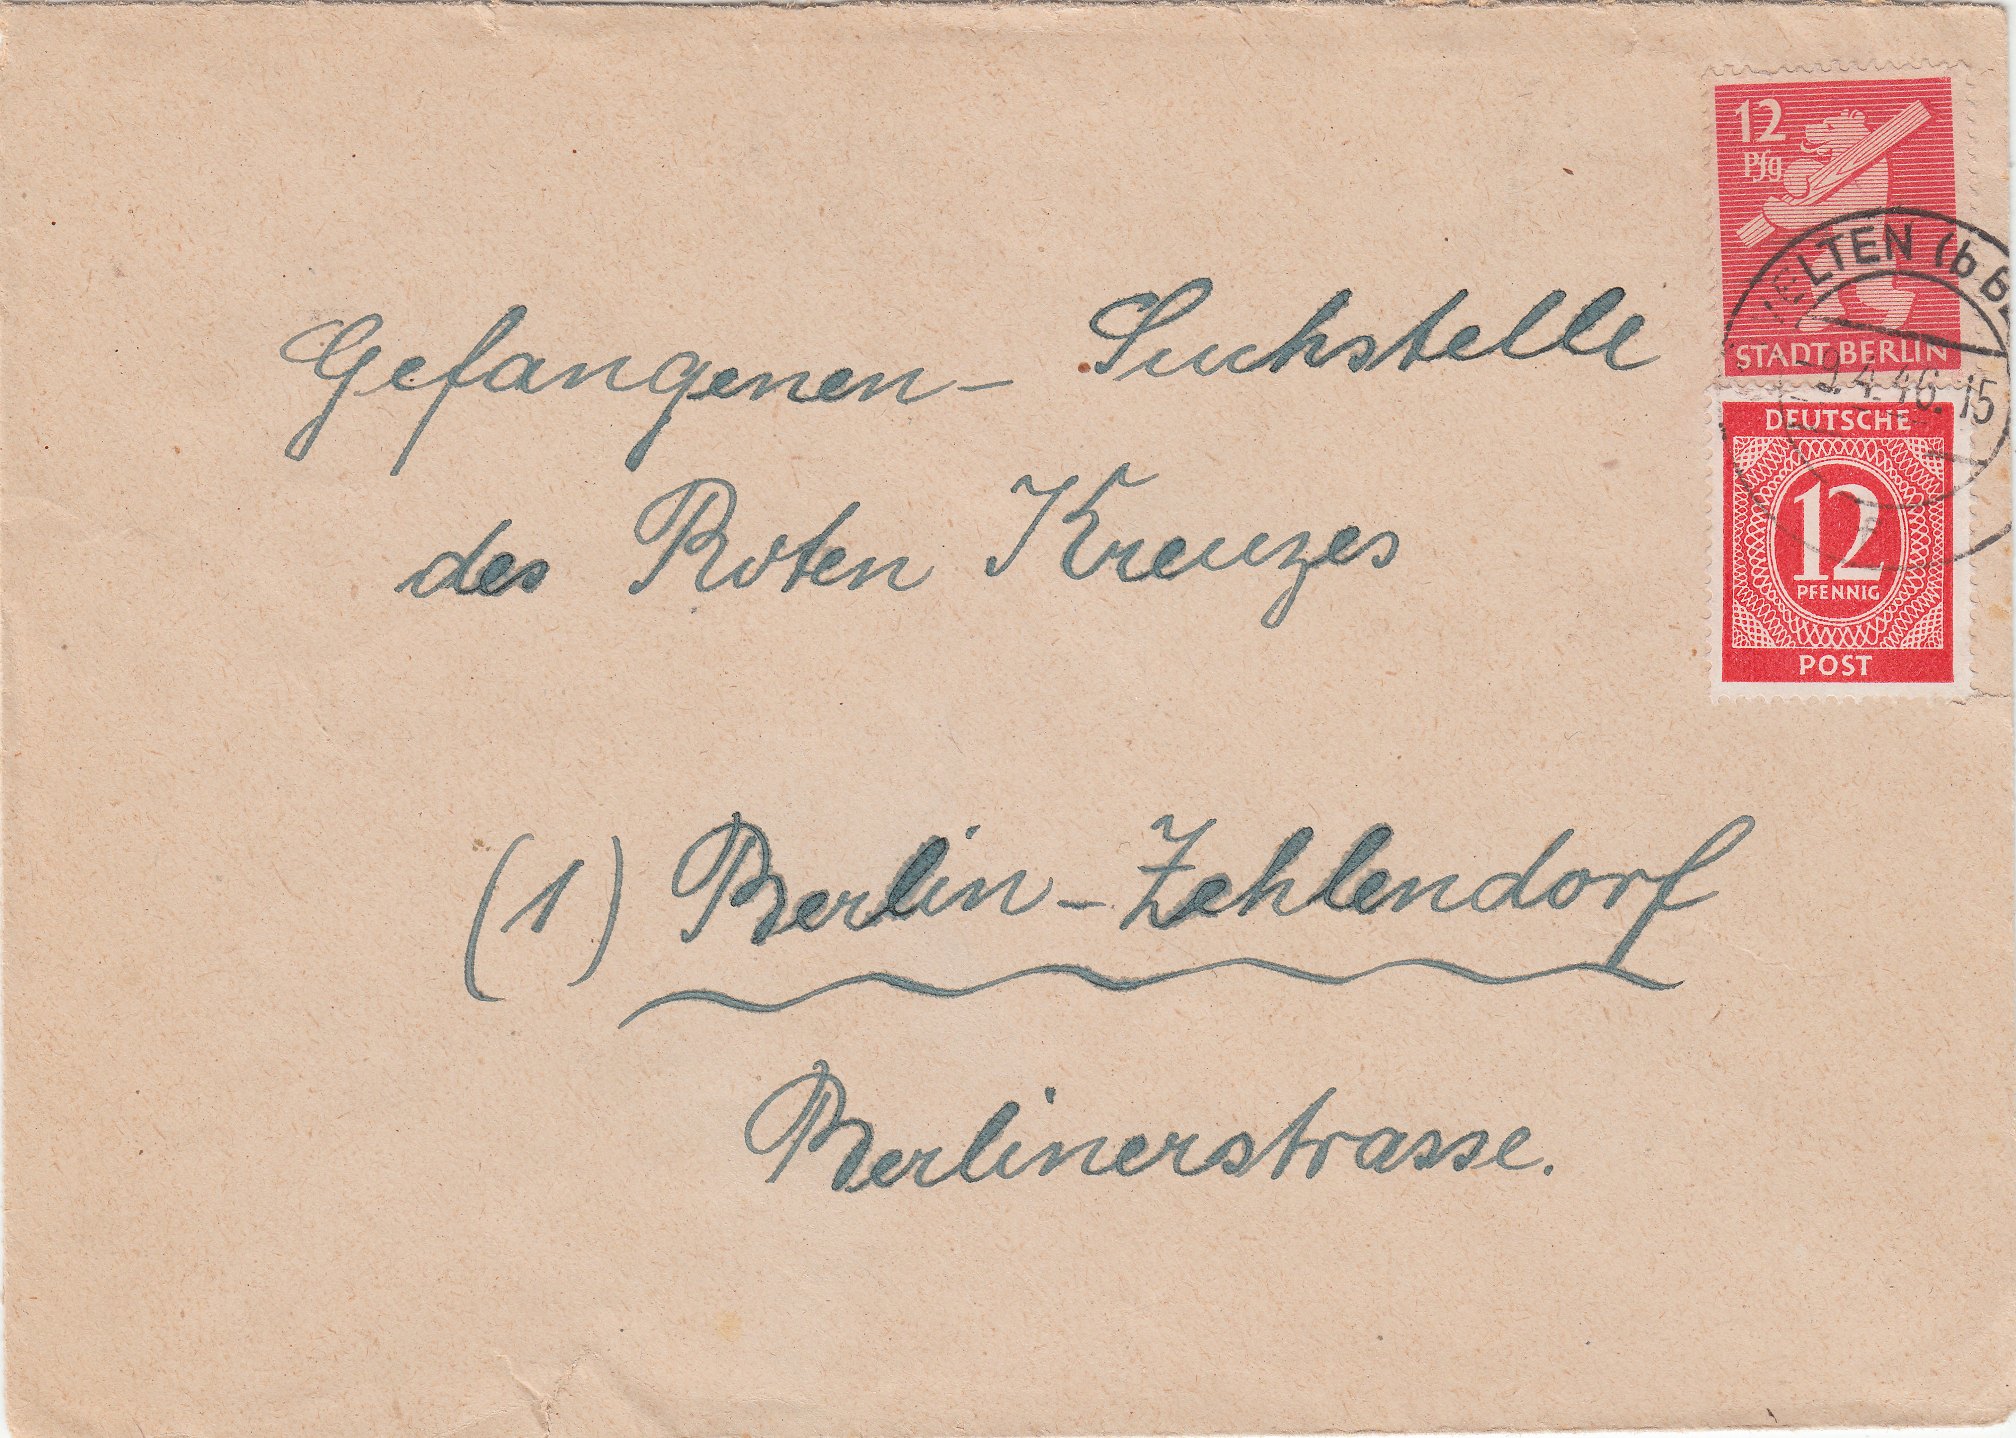 12
Pfg
STADT BERLIN
VELTEN (b BE
9.4.46. 15
DEUTSCHE
12
PFENNIG
POST
Gefangenen- Suchstelle
des Roten Kreuzes
(1) Berlin-Zehlendorf
Berlinerstrasse.